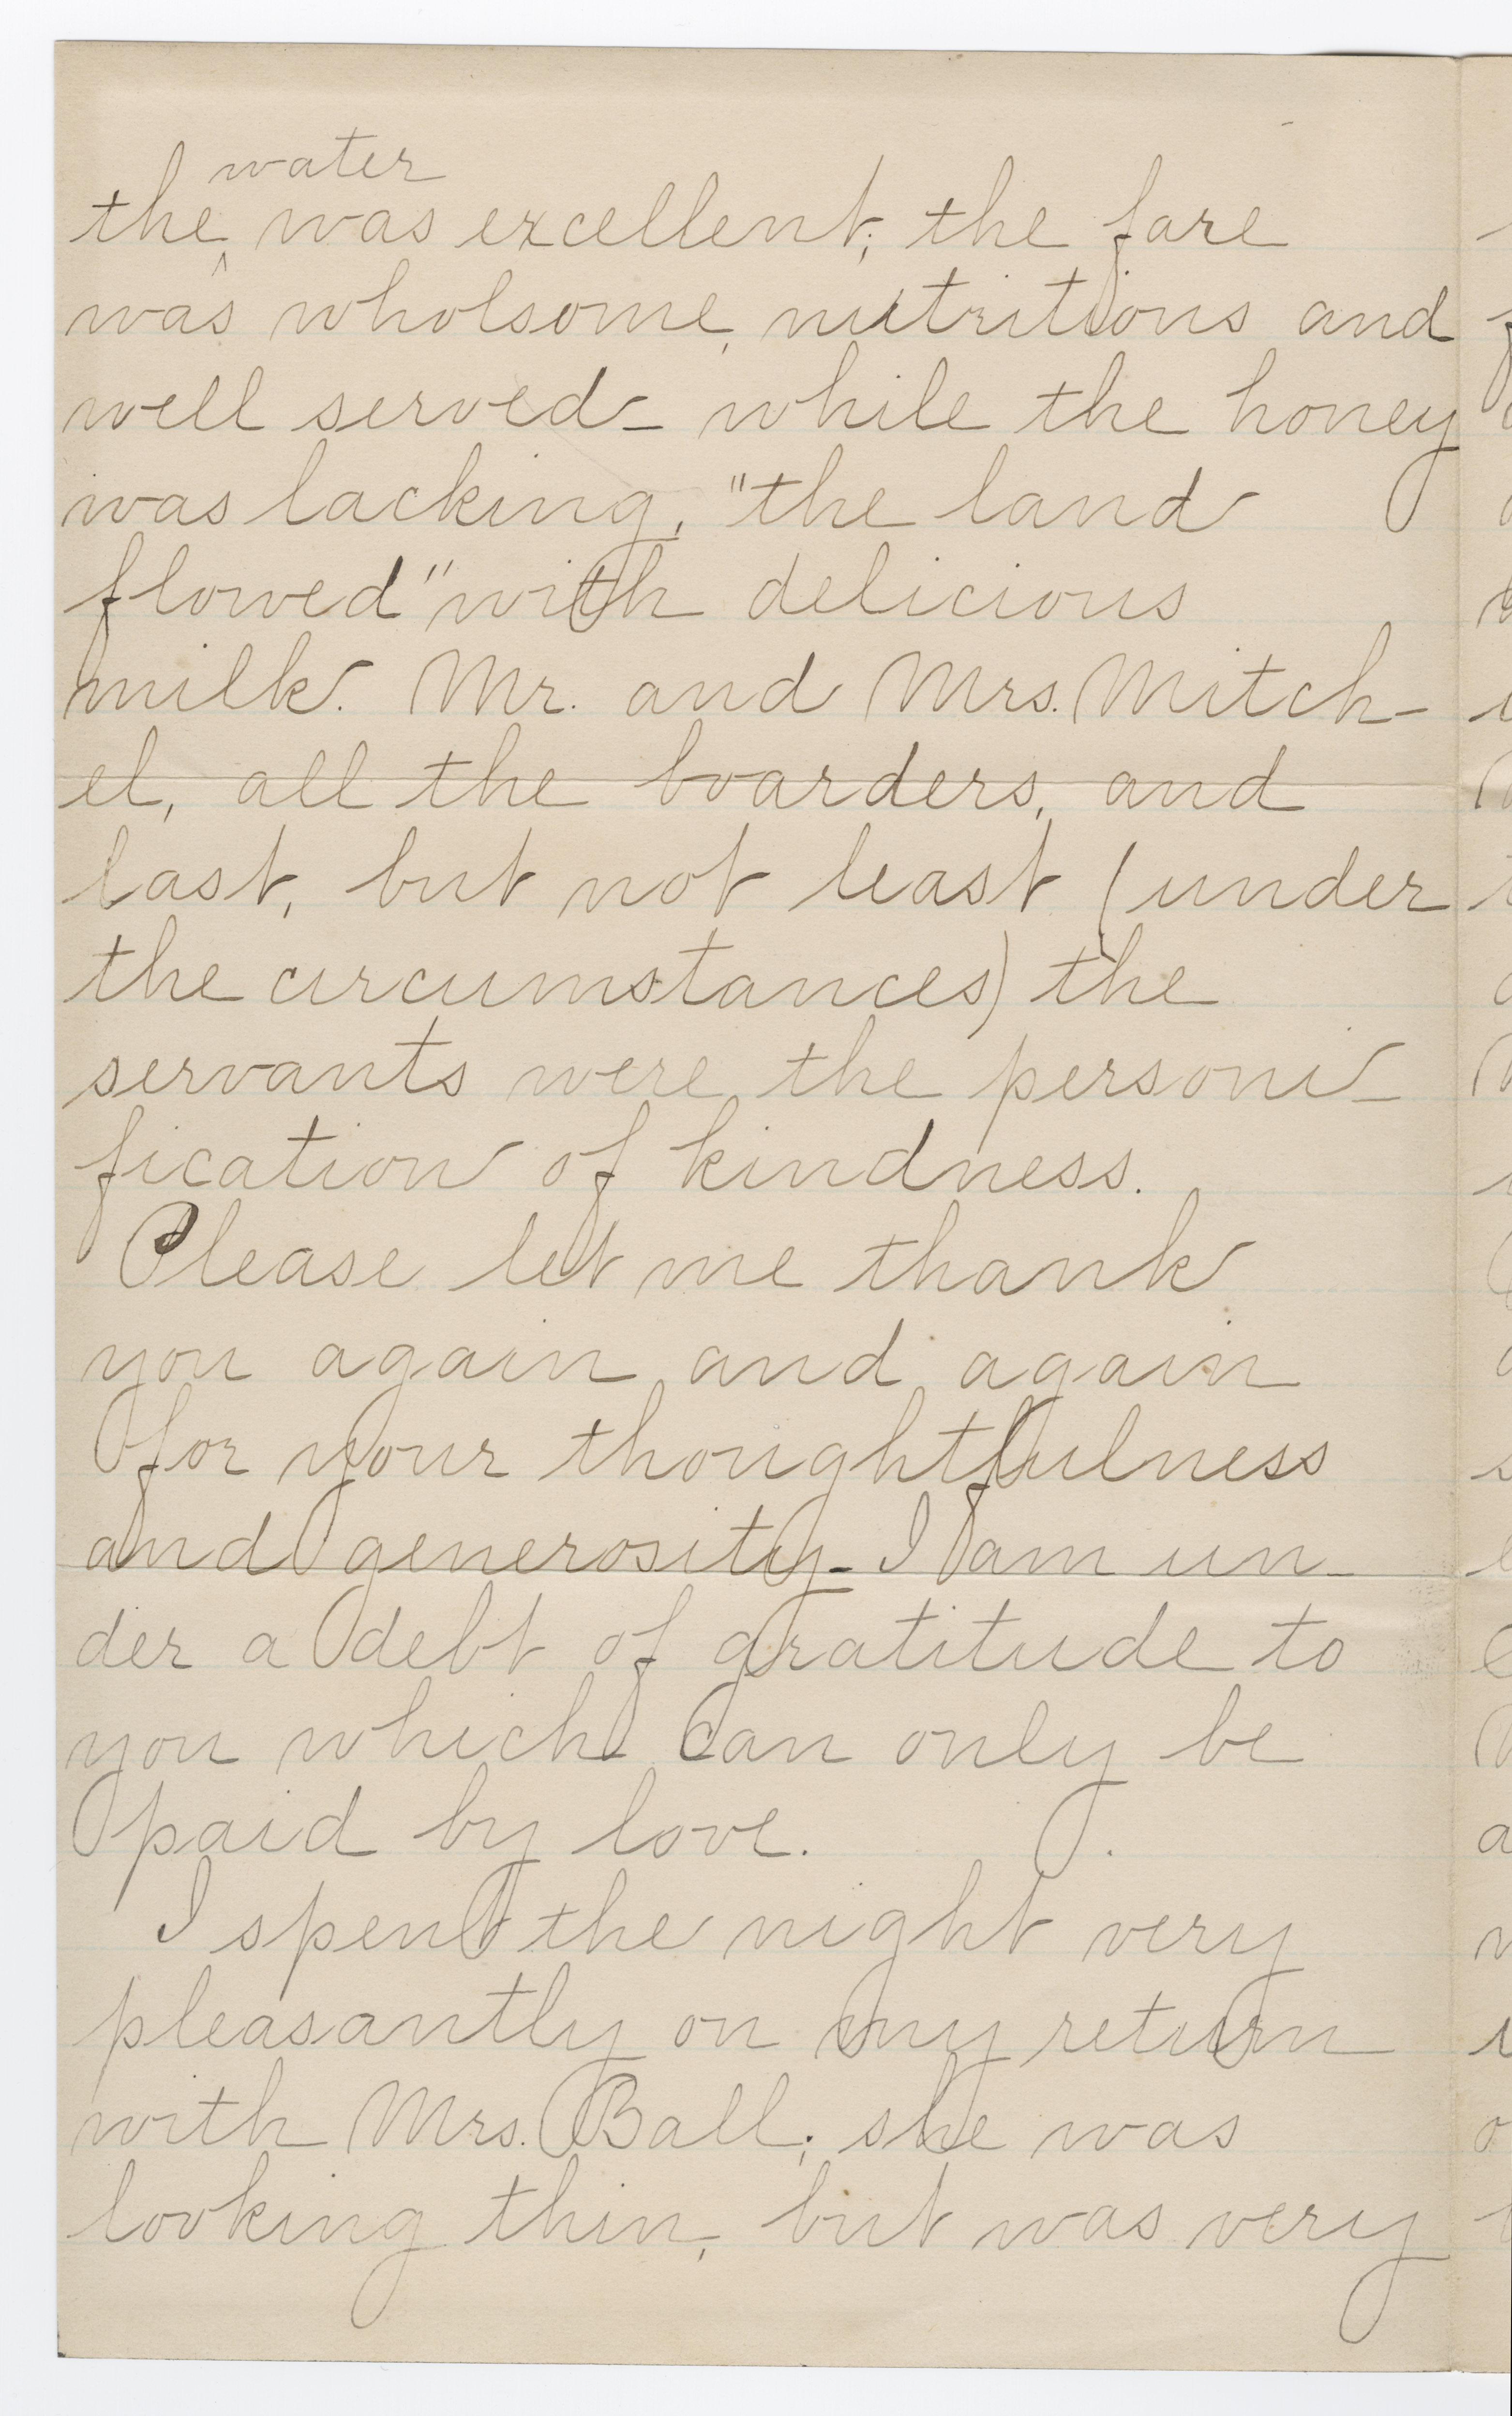 the ^water was excellent; the fare
was wholsome, nutritious and
well served - while the honey
was lacking, "the land
flowed" with delicious
milk. Mr. and Mrs. Mitch-
el, all the boarders, and
last, but not least (under
the circumstances) the
servants were the personi-
fication of kindness.
Please let me thank
you again and again
for your thoughtfulness
and generosity - I am un-
der a debt of gratitude to
you which can only be
paid by love.
I spent the night very
pleasantly on my return
with Mrs. Ball; she was
looking thin, but was very